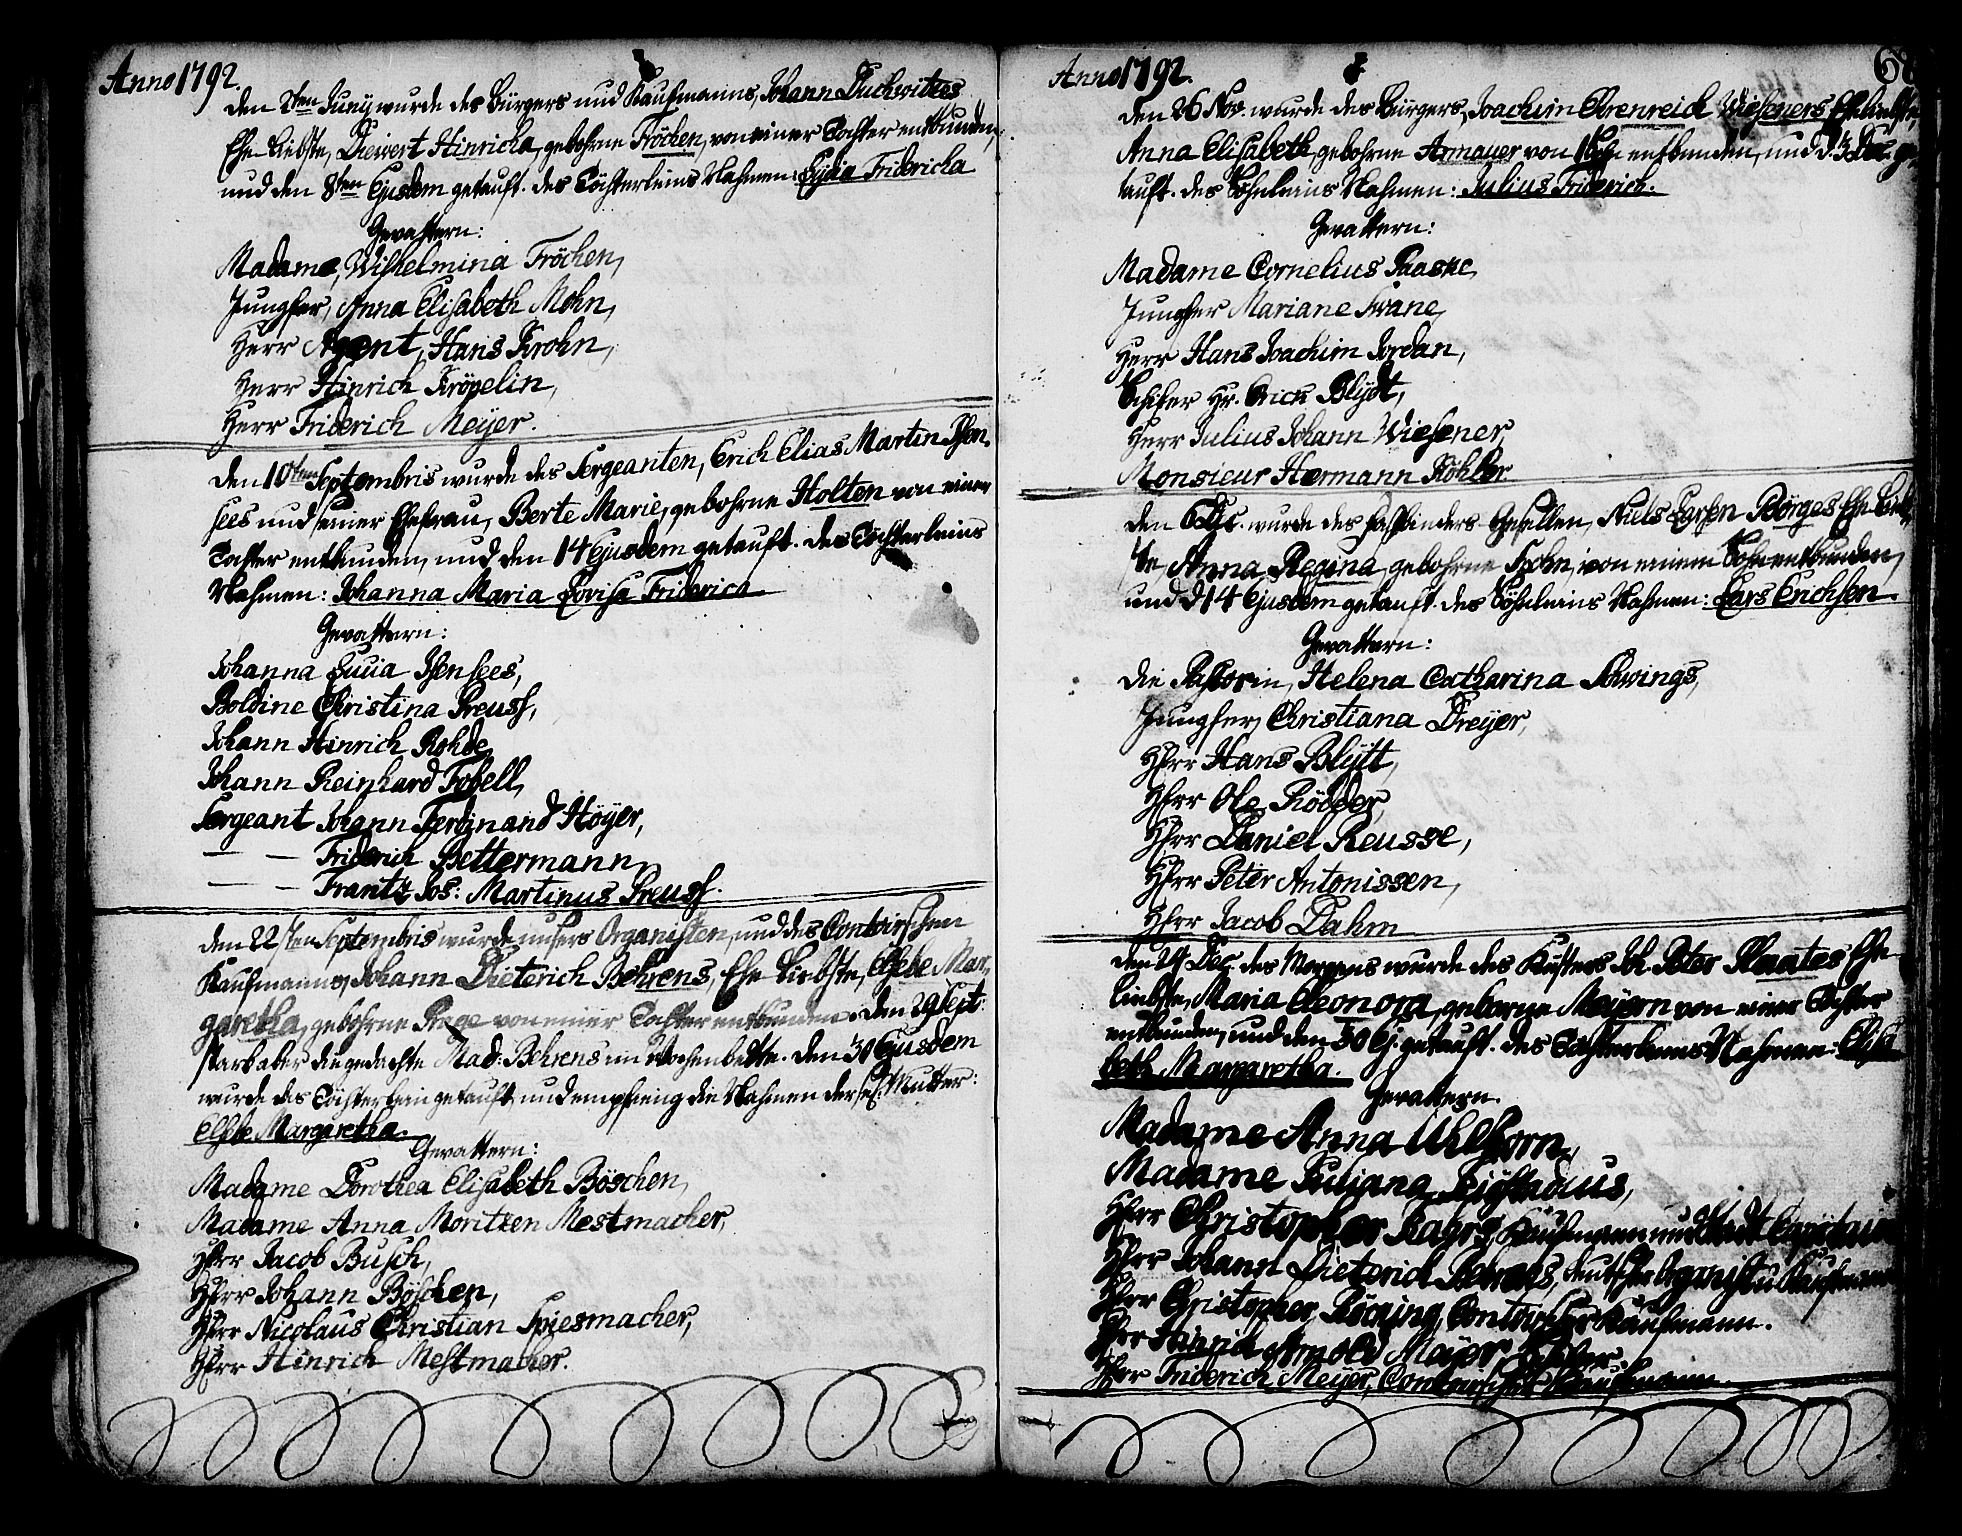 Anno 1792.
Den 2ten Juny wurde des Bürgers und Kaufmanns, Johann Duchwitzes
Ehe-Liebste, Diewert Hinricha, gebohrne Fröchen, von einer Tochter entbunden,
und den 8ten Ejusdem getauft. des Töchterleins Nahmen: Lydia Fridericha
Gevattern:
Madame, Wilhelmina Fröchen,
Jungfer, Anna Elisabeth Mohn,
Herr Agent, Hans Krohn,
Herr Hinrich Kröpelin,
Herr Friderich Meÿer.
Den 10ten Septembris wurde des Sergeanten, Erich Elias Martin Isen-
sees und seiner Ehefrau, Berte Marie, gebohrne Holten von einer
Tochter entbunden, und den 14 Ejusdem getauft. des Töchterleins
Nahmen: Johanna Maria Lovisa Friderica
Gevattern:
Johanna Lucia Isensees,
Boldine Christina Preuss,
Johann Hinrich Rohde,
Johann Reinhard Fobell,
Sergeant Johann Ferdinand Höyer,
— — Friderich Bettermann,
— — Frantz Jos: Martinus Preuss.
Den 22sten Septembris wurde unsers Organisten, und des Contoirschen
Kaufmanns, Johann Dieterich Behrens, Ehe Liebste, Elsebe Mar-
garetha, gebohrne Prege von einer Tochter entbunden. Den 29 Sept:
starb aber die gedachte Mad: Behrens im Wochenbette. Den 30 Ejusdem
wurde das Töchterlein getauft, und empfieng die Nahmen der sel. Mutter:
Elsebe Margaretha.
Gevattern:
Madame Dorothea Elisabeth Böschen,
Madame Anna Moritzen Mestmacher,
Herr Jacob Busch,
Herr Johann Böschen,
Herr Nicolaus Christian Spiesmacher,
Herr Hinrich Mestmacher.
Anno 1792.
68
Den 26 Nov. wurde des Bürgers, Joachim Ehrenreich Wieseners Eheliebste,
Anna Elisabeth, gebohrne Armauer von 1 Sohn entbunden, und d. 3 Dec. ge-
tauft. des Söhnleins Nahmen: Julius Friderich.
Gevattern:
Madame Cornelius Paaske,
Jungfer Mariane Svane,
Herr Hans Joachim Jordan,
Schifer Hr. Erick Blÿdt,
Herr Julius Johann Wiesener,
Monsieur Hermann Köhler.
Den 6 Dec. wurde des Fassbinders-Gesellen, Niels Larsen Börges Ehe Lieb-
ste, Anna Regina, gebohrne Kohn, von einem Sohn entbunden,
und d 14 Ejusdem getauft. des Söhnleins Nahmen: Lars Erichsen.
Gevattern:
Die Pastorin, Helena Catharina Schwings,
Jungfer, Christiana Dreyer,
Herr Hans Blÿtt,
Herr Ole Rödder,
Herr Daniel Reusse,
Herr Peter Antonissen,
Herr Jacob Dahm
Den 27 Dec. des Morgens wurde des Küsters Joh. Peter Plaates Ehe-
liebste, Maria Eleonora, geborne Meÿern von einer Tochter
entbunden, und den 30 Ej. getauft. des Töchterleins Nahmen: Elisa-
beth Margaretha.
Gevattern.
Madame Anna Uhlhorn,
Madame Juliana
Herr Christopher Kahrs, Kaufmann und Stadt Capitain
Herr Johann Dieterich Behrens, deutscher Organist u Kaufmann
Herr Christopher Röening, Contoirscher Kaufmann.
Herr Hinrich Arnold Meÿer,
Herr Friderich Meÿer, Contoirscher Kaufmann.